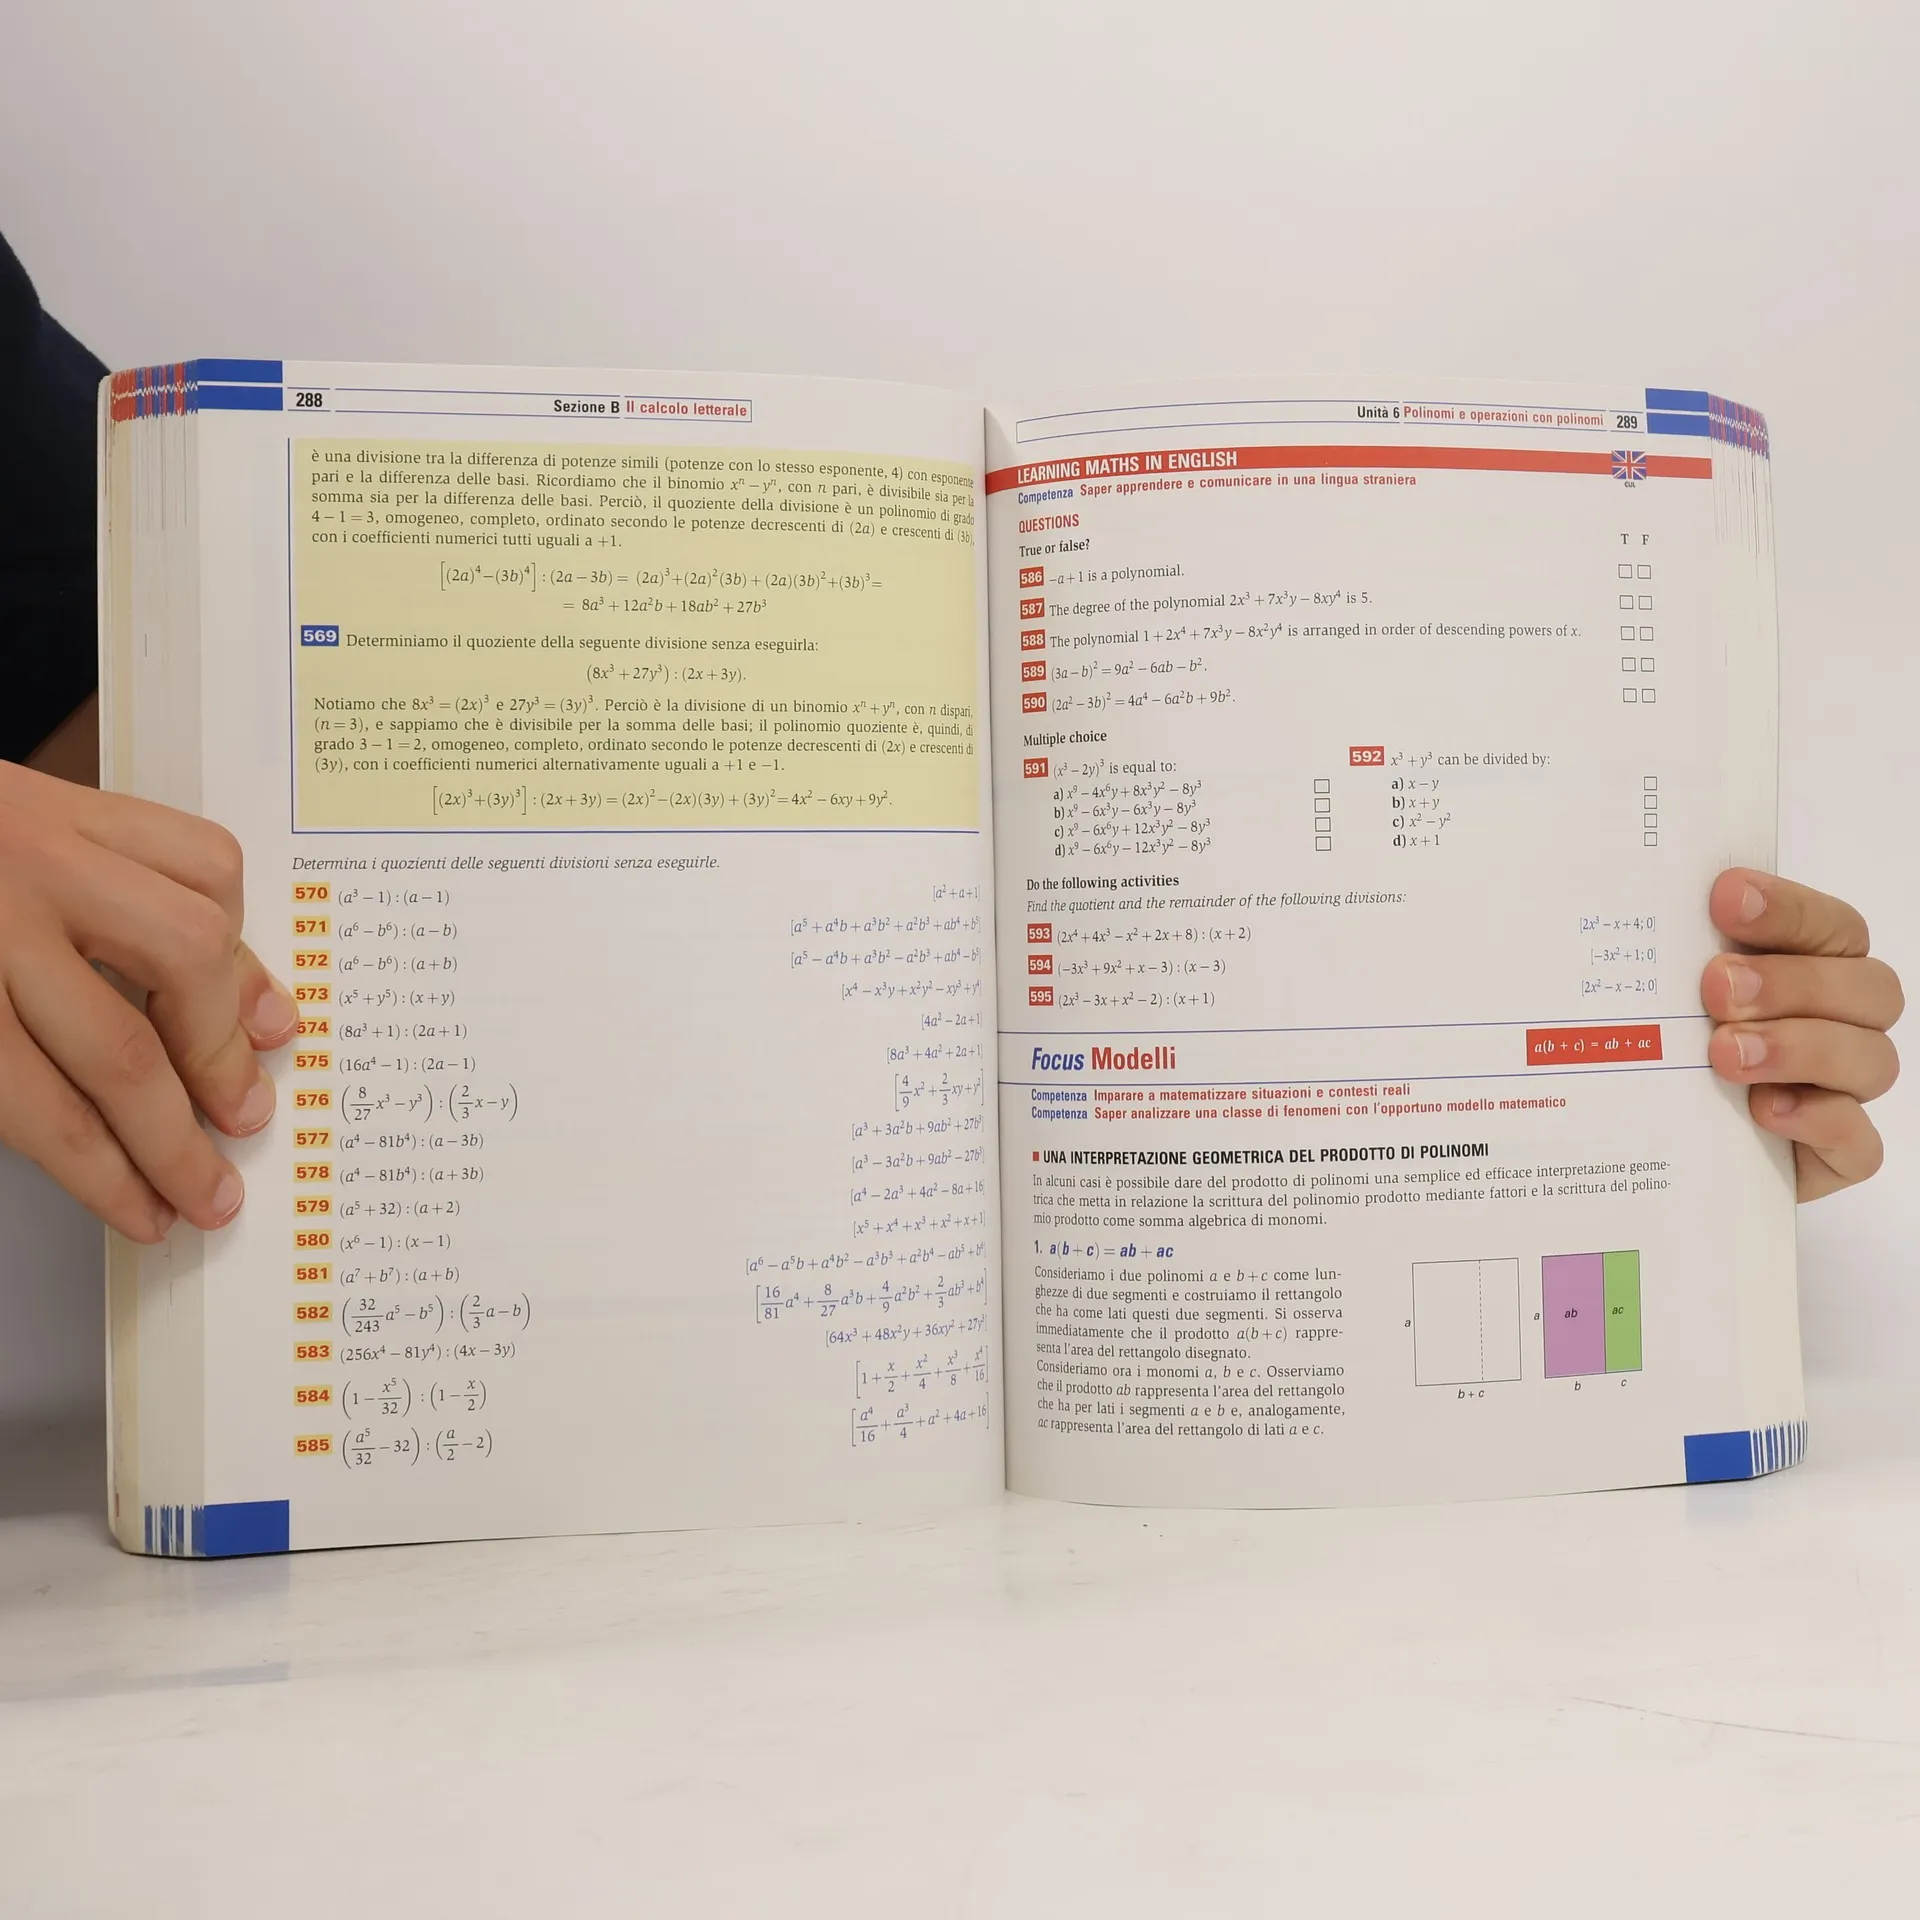 288
Sezione B Il calcolo letterale
è una divisione tra la differenza di potenze simili (potenze con lo stesso esponente, 4) con esponente
pari e la differenza delle basi. Ricordiamo che il binomio xⁿ – yⁿ, con n pari, è divisibile sia per la
somma sia per la differenza delle basi. Perciò, il quoziente della divisione è un polinomio di grado
4 – 1 = 3, omogeneo, completo, ordinato secondo le potenze decrescenti di (2a) e crescenti di (3b),
con i coefficienti numerici tutti uguali a +1.
[(2a)⁴–(3b)⁴] : (2a – 3b) = (2a)³+(2a)²(3b) + (2a)(3b)²+(3b)³=
= 8a³ + 12a²b + 18ab² + 27b³
569 Determiniamo il quoziente della seguente divisione senza eseguirla:
(8x³ + 27y³) : (2x + 3y).
Notiamo che 8x³ = (2x)³ e 27y³ = (3y)³. Perciò è la divisione di un binomio xⁿ + yⁿ, con n dispari,
(n = 3), e sappiamo che è divisibile per la somma delle basi; il polinomio quoziente è, quindi, di
grado 3 – 1 = 2, omogeneo, completo, ordinato secondo le potenze decrescenti di (2x) e crescenti di
(3y), con i coefficienti numerici alternativamente uguali a +1 e –1.
[(2x)³+(3y)³] : (2x + 3y) = (2x)²–(2x)(3y) + (3y)²= 4x² – 6xy + 9y².
Determina i quozienti delle seguenti divisioni senza eseguirle.
570 (a³ – 1) : (a – 1) [a² + a + 1]
571 (a⁶ – b⁶) : (a – b) [a⁵ + a⁴b + a³b² + a²b³ + ab⁴ + b⁵]
572 (a⁶ – b⁶) : (a + b) [a⁵ – a⁴b + a³b² – a²b³ + ab⁴ – b⁵]
573 (x⁵ + y⁵) : (x + y) [x⁴ – x³y + x²y² – xy³ + y⁴]
574 (8a³ + 1) : (2a + 1) [4a² – 2a + 1]
575 (16a⁴ – 1) : (2a – 1) [8a³ + 4a² + 2a + 1]
576 (8/27 x³ – y³) : (2/3 x – y) [4/9 x² + 2/3 xy + y²]
577 (a⁴ – 81b⁴) : (a – 3b) [a³ + 3a²b + 9ab² + 27b³]
578 (a⁴ – 81b⁴) : (a + 3b) [a³ – 3a²b + 9ab² – 27b³]
579 (a⁵ + 32) : (a + 2) [a⁴ – 2a³ + 4a² – 8a + 16]
580 (x⁶ – 1) : (x – 1) [x⁵ + x⁴ + x³ + x² + x + 1]
581 (a⁷ + b⁷) : (a + b) [a⁶ – a⁵b + a⁴b² – a³b³ + a²b⁴ – ab⁵ + b⁶]
582 (32/243 a⁵ – b⁵) : (2/3 a – b) [16/81 a⁴ + 8/27 a³b + 4/9 a²b² + 2/3 ab³ + b⁴]
583 (256x⁴ – 81y⁴) : (4x – 3y) [64x³ + 48x²y + 36xy² + 27y³]
584 (1 – x⁵/32) : (1 – x/2) [1 + x/2 + x²/4 + x³/8 + x⁴/16]
585 (a⁵/32 – 32) : (a/2 – 2) [a⁴/16 + a³/4 + a² + 4a + 16]
Unità 6 Polinomi e operazioni con polinomi 289
LEARNING MATHS IN ENGLISH
CLIL
Competenza Saper apprendere e comunicare in una lingua straniera
QUESTIONS
True or false? T F
586 –a + 1 is a polynomial.
587 The degree of the polynomial 2x³ + 7x³y – 8xy⁴ is 5.
588 The polynomial 1 + 2x⁴ + 7x³y – 8x²y⁴ is arranged in order of descending powers of x.
589 (3a – b)² = 9a² – 6ab – b².
590 (2a² – 3b)² = 4a⁴ – 6a²b + 9b².
Multiple choice
591 (x³ – 2y)³ is equal to:
a) x⁹ – 4x⁶y + 8x³y² – 8y³
b) x⁹ – 6x³y – 6x³y – 8y³
c) x⁹ – 6x⁶y + 12x³y² – 8y³
d) x⁹ – 6x⁶y – 12x³y² – 8y³
592 x³ + y³ can be divided by:
a) x – y
b) x + y
c) x² – y²
d) x + 1
Do the following activities
Find the quotient and the remainder of the following divisions:
593 (2x⁴ + 4x³ – x² + 2x + 8) : (x + 2) [2x³ – x + 4; 0]
594 (–3x³ + 9x² + x – 3) : (x – 3) [–3x² + 1; 0]
595 (2x³ – 3x + x² – 2) : (x + 1) [2x² – x – 2; 0]
Focus Modelli
a(b + c) = ab + ac
Competenza Imparare a matematizzare situazioni e contesti reali
Competenza Saper analizzare una classe di fenomeni con l'opportuno modello matematico
UNA INTERPRETAZIONE GEOMETRICA DEL PRODOTTO DI POLINOMI
In alcuni casi è possibile dare del prodotto di polinomi una semplice ed efficace interpretazione geome-
trica che metta in relazione la scrittura del polinomio prodotto mediante fattori e la scrittura del polino-
mio prodotto come somma algebrica di monomi.
1. a(b + c) = ab + ac
Consideriamo i due polinomi a e b + c come lun-
ghezze di due segmenti e costruiamo il rettangolo
che ha come lati questi due segmenti. Si osserva
immediatamente che il prodotto a(b + c) rappre-
senta l'area del rettangolo disegnato.
Consideriamo ora i monomi a, b e c. Osserviamo
che il prodotto ab rappresenta l'area del rettangolo
che ha per lati i segmenti a e b e, analogamente,
ac rappresenta l'area del rettangolo di lati a e c.
a
b + c
a
ab
ac
b
c